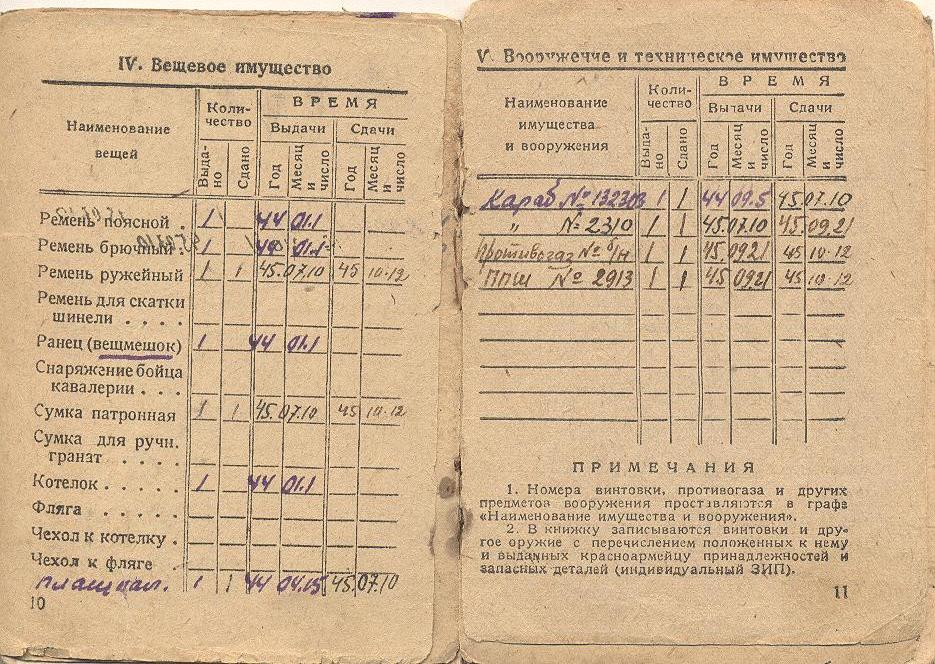 IV. Вещевое имущество
Наименование вещей
Коли-чество
ВРЕМЯ
Выдачи
Сдачи
Выда-но
Сдано
Год
Месяц и число
Год
Месяц и число
Ремень поясной . 1 44 01.1
Ремень брючный . 1 44 01.1
Ремень ружейный 1 1 45. 07.10 45 10.12
Ремень для скатки
шинели . . . .
Ранец (вещмешок) 1 44 01.1
Снаряжение бойца
кавалерии . . .
Сумка патронная 1 1 45. 07.10 45 10.12
Сумка для ручн.
гранат . . . .
Котелок . . . . . 1 44 01.1
Фляга . . . . .
Чехол к котелку .
Чехол к фляге
плащпал. 1 1 44 04.15 45. 07.10
10
V. Вооружение и техническое имущество
Наименование
имущества
и вооружения
Коли-чество
ВРЕМЯ
Выдачи
Сдачи
Выда-но
Сдано
Год
Месяц и число
Год
Месяц и число
Караб № 1 1 44 09.5 45. 07.10
" № 2310 1 1 45. 07.10 45. 09.21
Противогаз № б/н 1 1 45. 09.21 45 10.12
ППШ № 2913 1 1 45 09.21 45 10.12
ПРИМЕЧАНИЯ
1. Номера винтовки, противогаза и других
предметов вооружения проставляются в графе
«Наименование имущества и вооружения».
2. В книжку записываются винтовки и дру-
гое оружие с перечислением положенных к нему
и выданных красноармейцу принадлежностей и
запасных деталей (индивидуальный ЗИП).
11